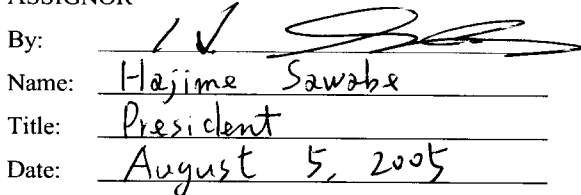 ASSIGNOR
By:
Name: Hajime Sawabe
Title: President
Date: August 5, 2005